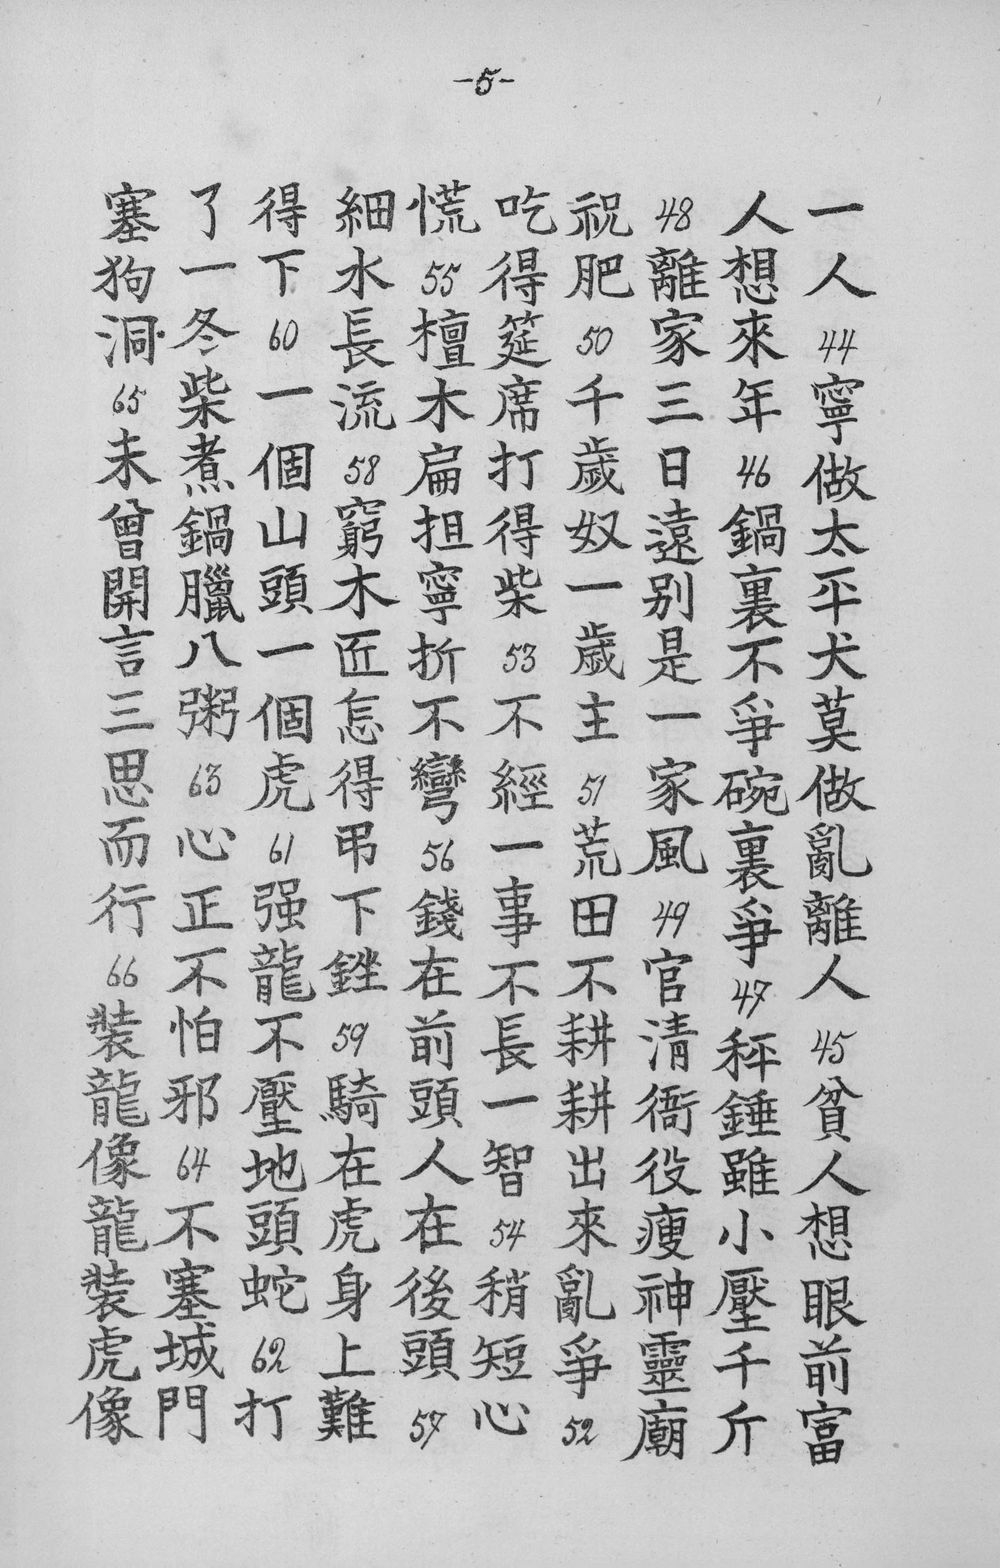 -5-
一人 44 寧做太平犬莫做亂離人 45 貧人想眼前富
人想來年 46 鍋裏不爭碗裏爭 47 秤錘雖小壓千斤
48 離家三日遠別是一家風 49 官清衙役瘦神靈廟
祝肥 50 千歲奴一歲主 51 荒田不耕耕出來亂爭 52
吃得筵席打得柴 53 不經一事不長一智 54 稍短心
慌 55 檀木扁担寧折不彎 56 錢在前頭人在後頭 57
細水長流 58 窮木匠怎得弔下銼 59 騎在虎身上難
得下 60 一個山頭一個虎 61 强龍不壓地頭蛇 62 打
了一冬柴煮鍋臘八粥 63 心正不怕邪 64 不塞城門
塞狗洞 65 未曾開言三思而行 66 裝龍像龍裝虎像